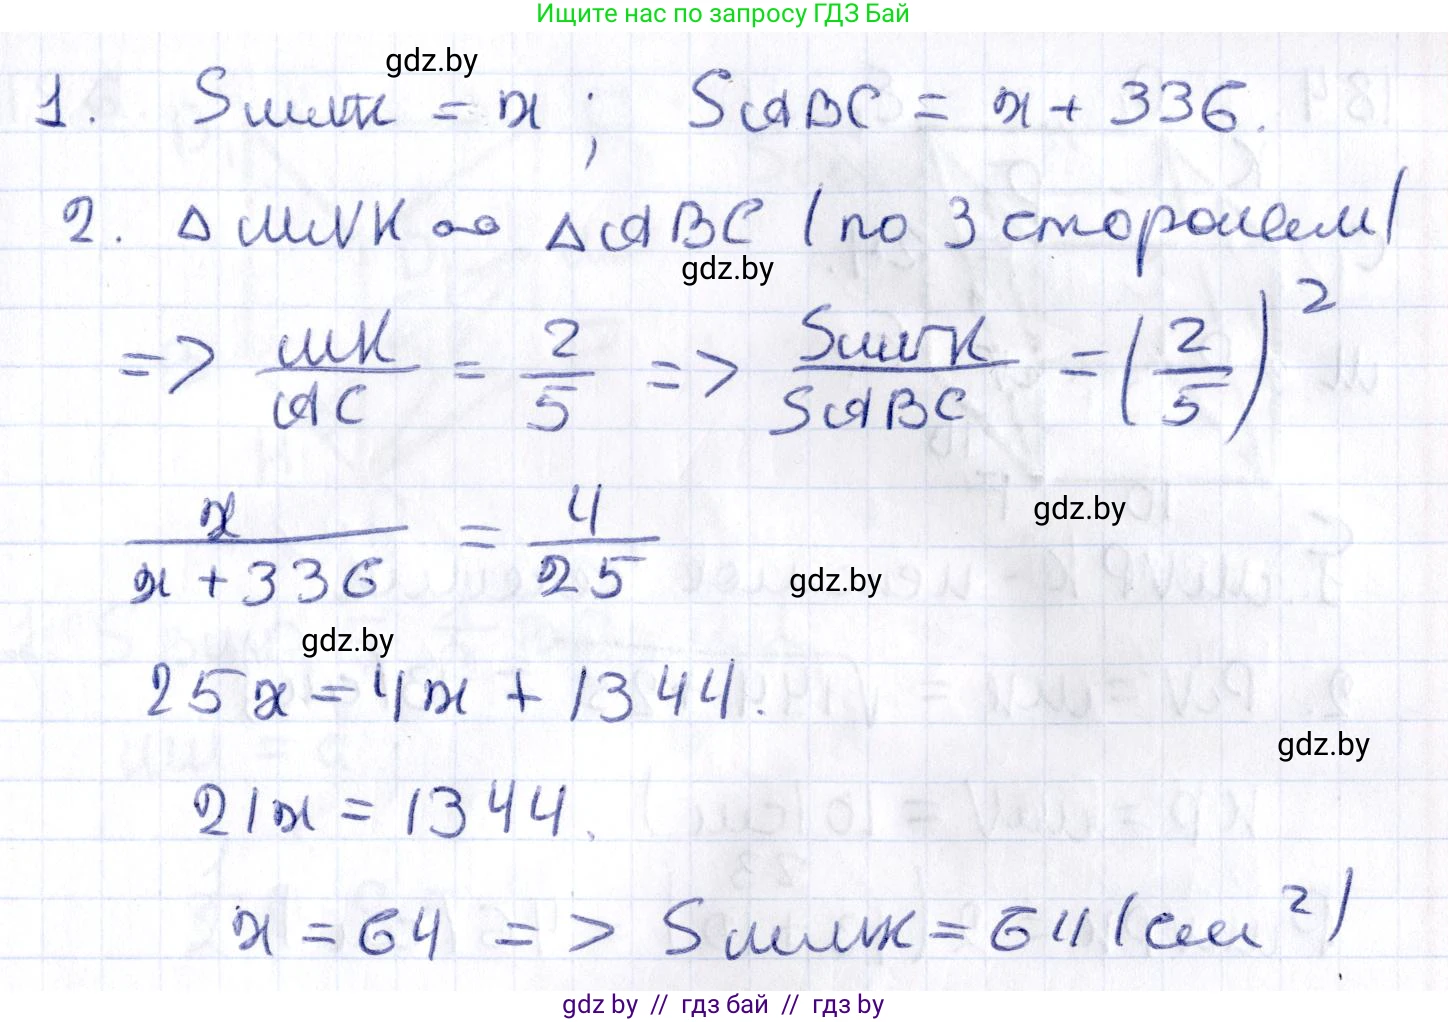 Ищите нас по запросу ГДЗ Бай
gdz.by
1. SMNK = x ; SABC = x + 336.
2. Δ MNK ∾ Δ ABC (по 3 сторонам)
gdz.by
=> MK/AC = 2/5 => SMNK/SABC = (2/5)²
x/(x + 336) = 4/25
gdz.by
gdz.by
gdz.by
25x = 4x + 1344.
gdz.by
21x = 1344.
x = 64 => SMNK = 64 (см²)
gdz by // гдз бай // гдз by